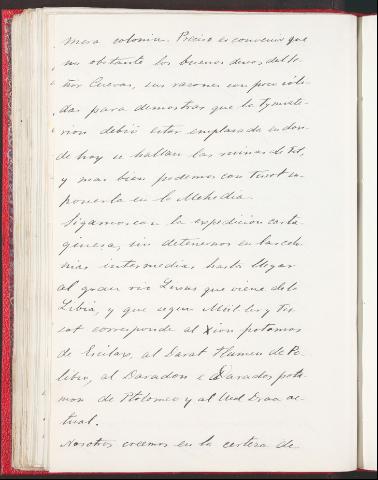 mera colonia. Preciso es convenir que
no obstante los buenos deseos del Se-
ñor Cuevas, sus razones son poco sóli-
das para demostrar que la Tymiate-
rion debió estar emplazada en don-
de hoy se hallan las ruinas de
y mas bien podemos con Tixot su-
ponerla en la Mehedia.
Sigamos con la expedicion carta-
ginesa, sin detenernos en las colo-
nias intermedias hasta llegar
al gran rio Lixus que viene de la
Libia, y que segun Müller y Tix-
ot corresponde al Xion potamos
de Escilax, al Darat flumen de Po-
libio, al Daradon o Darados pota-
mon de Ptolomeo y al Uad Draa ac-
tual.
Nosotros creemos en la certeza de